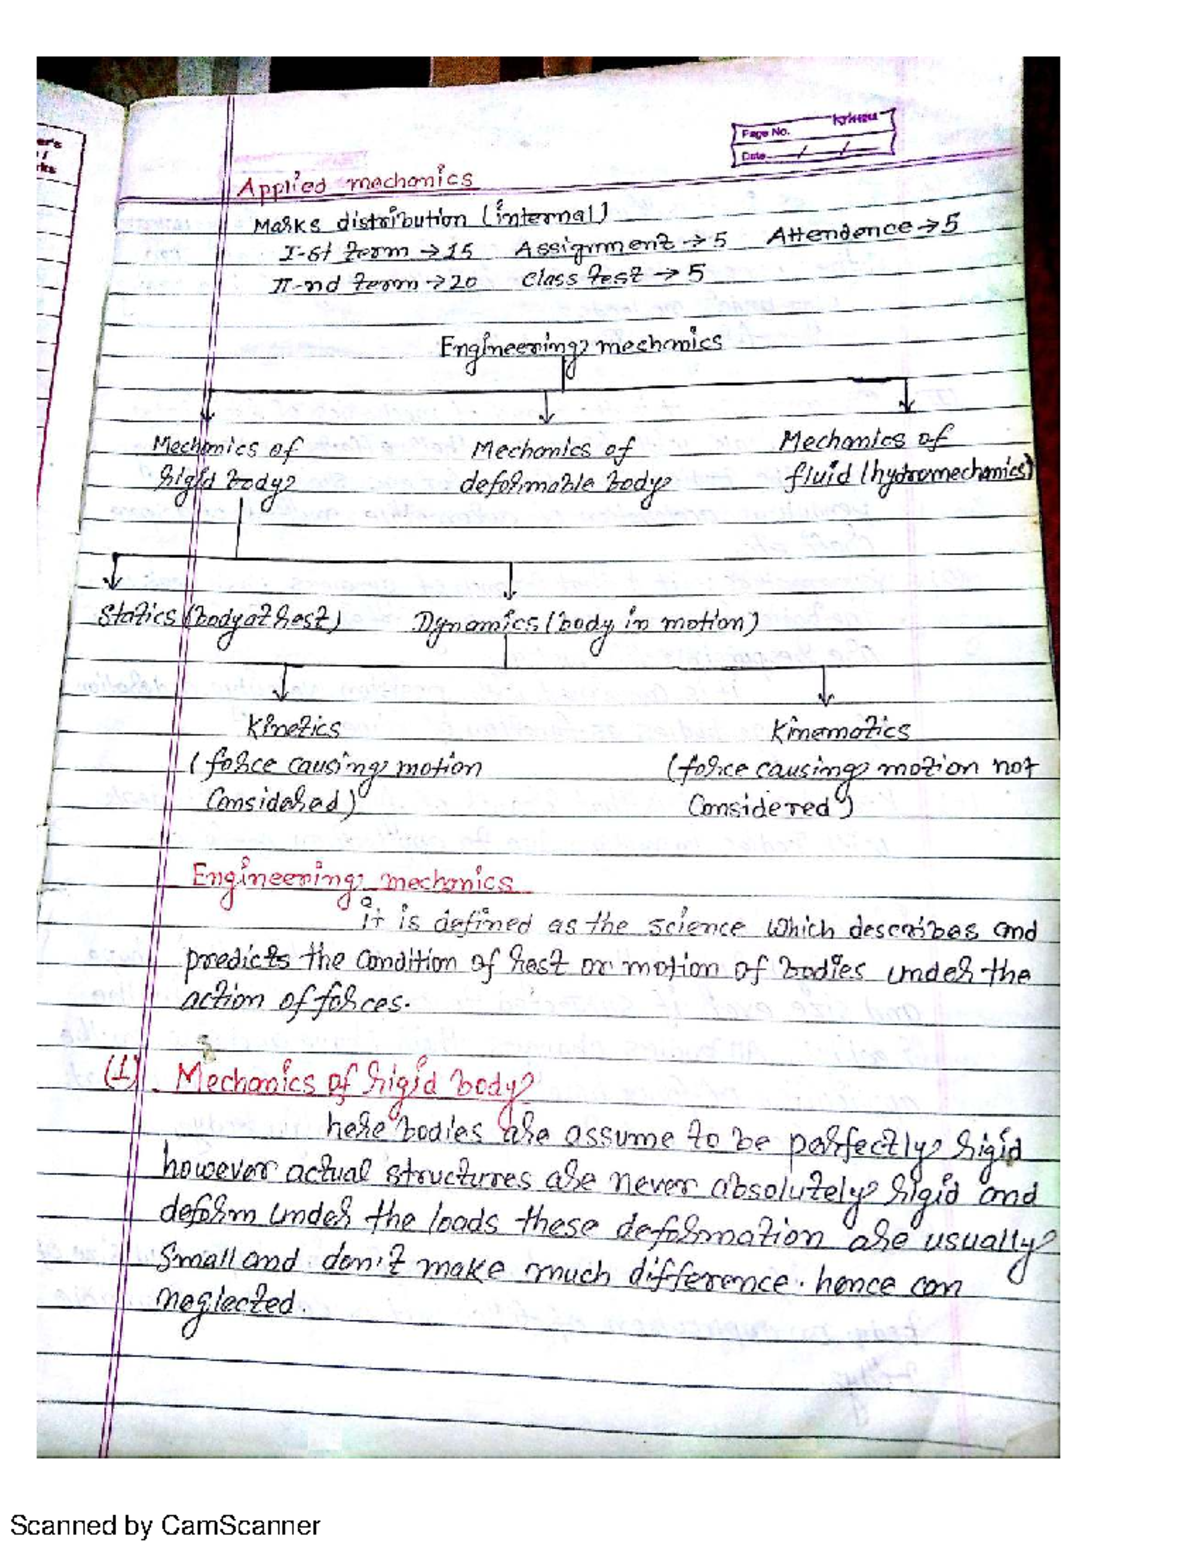 er's
/
ks
Page No.
Date / /
Applied mechanics
Marks distribution (internal)
I-st term → 15 Assignment → 5 Attendence → 5
II-nd term → 20 Class test → 5
Engineering mechanics
Mechanics of Mechanics of Mechanics of
rigid body deformable body fluid (hydromechanics)
Statics (body at rest) Dynamics (body in motion)
Kinetics Kinematics
(force causing motion (force causing motion not
Considered) Considered)
Engineering mechanics
it is defined as the science which describes and
predicts the condition of rest or motion of bodies under the
action of forces.
(1). Mechanics of rigid body
here bodies are assume to be perfectly rigid
however actual structures are never absolutely rigid and
deform under the loads these deformation are usually
small and don't make much difference. hence can
neglected.
Scanned by CamScanner